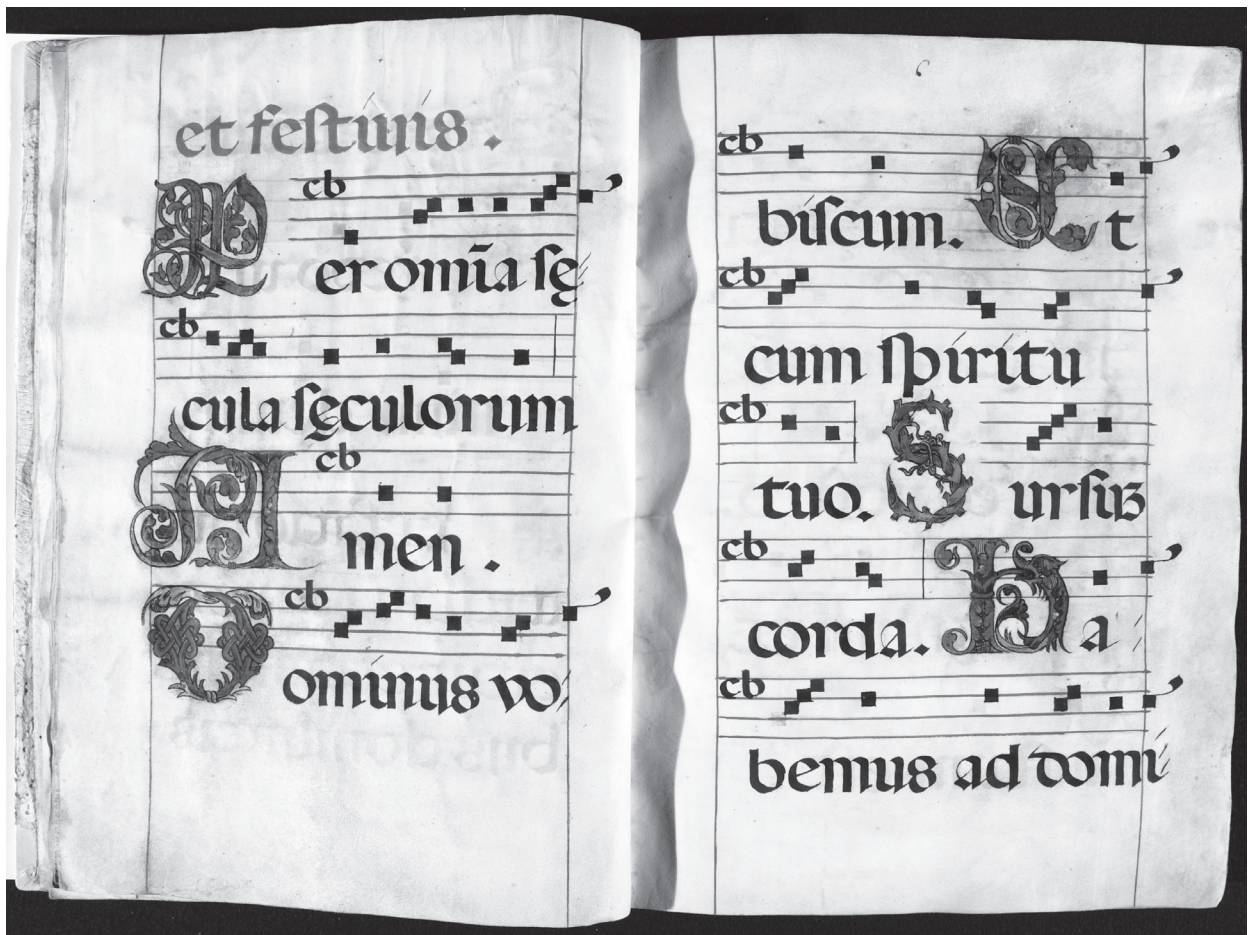 et festiuis.
Per om̄ia sę
cula sęculorum
Amen.
Dominus vo
biscum. Et
cum spiritu
tuo. Sursus
corda. Ha
bemus ad domi